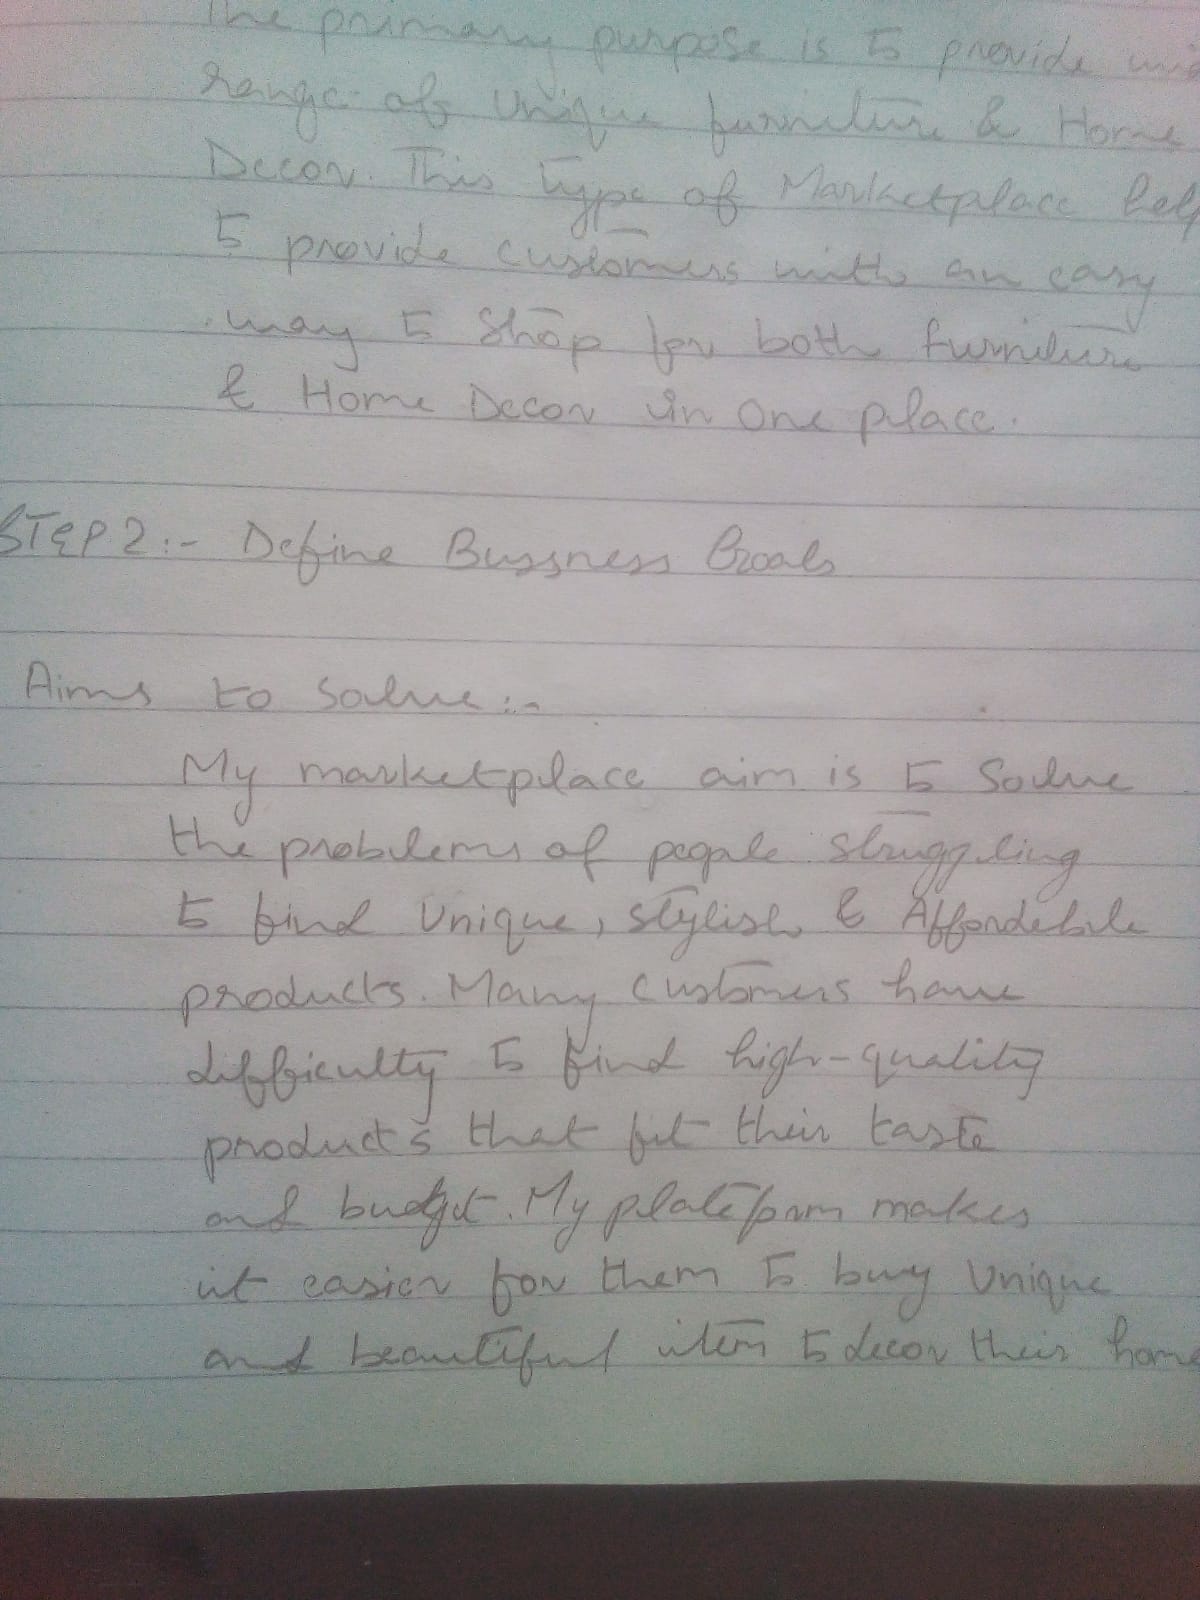 The primary purpose is to provide
range of Unique furniture & Home
Decor. This type of Marketplace help
to provide customers with an easy
way to Shop for both furniture
& Home Decor in One place.
STEP 2:- Define Bussness Goals
Aims to Solve:-
My marketplace aim is to Solve
the problems of people struggling
to find Unique, stylish & Affordable
products. Many customers have
difficulty to find high-quality
products that fit their taste
and budget. My plateform makes
it easier for them to buy Unique
and beautiful item to decor their home